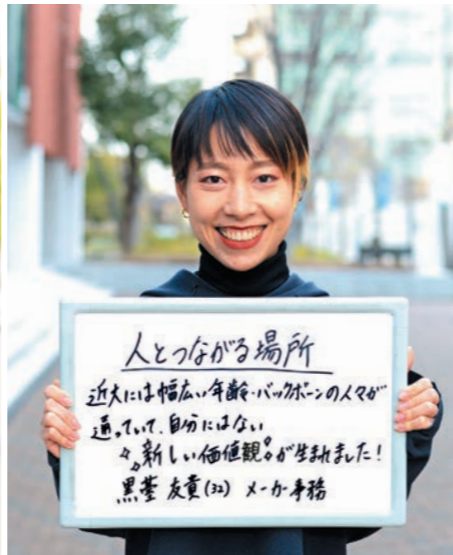 人とつながる場所
近大には幅広い年齢・バックボーンの人々が
通っていて、自分にはない
新しい価値観が生まれました！
友貴(32) メーカー事務